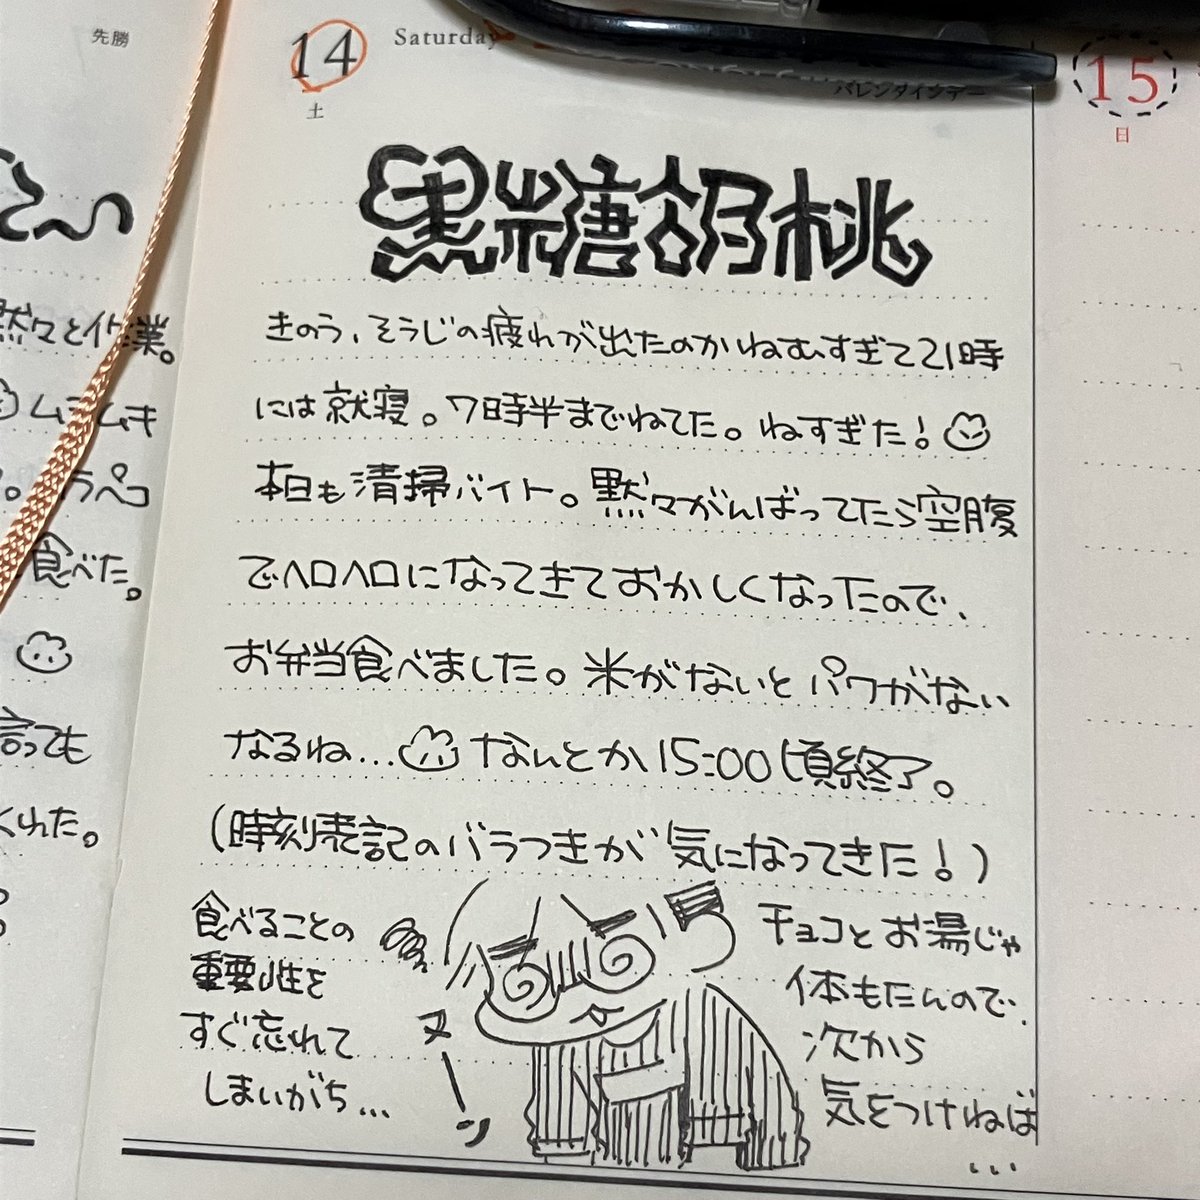 先勝
黙々と作業。
ムラムキ
食べた。
言っても
くれた。
14
Saturday
土
バレンタインデー
黒糖胡桃
きのう、そうじの疲れが出たのかねむすぎて21時
には就寝。7時半までねてた。ねすぎた!
本日も清掃バイト。黙々がんばってたら空腹
でヘロヘロになってきておかしくなったので、
お弁当食べました。米がないとパワがない
なるね...なんとか15:00頃終了。
(時刻表記のバラつきが気になってきた!)
食べることの
重要性を
すぐ忘れて
しまいがち...
ヌーン
チョコとお湯じゃ
体もたんので、
次から
気をつけねば
...
15
日